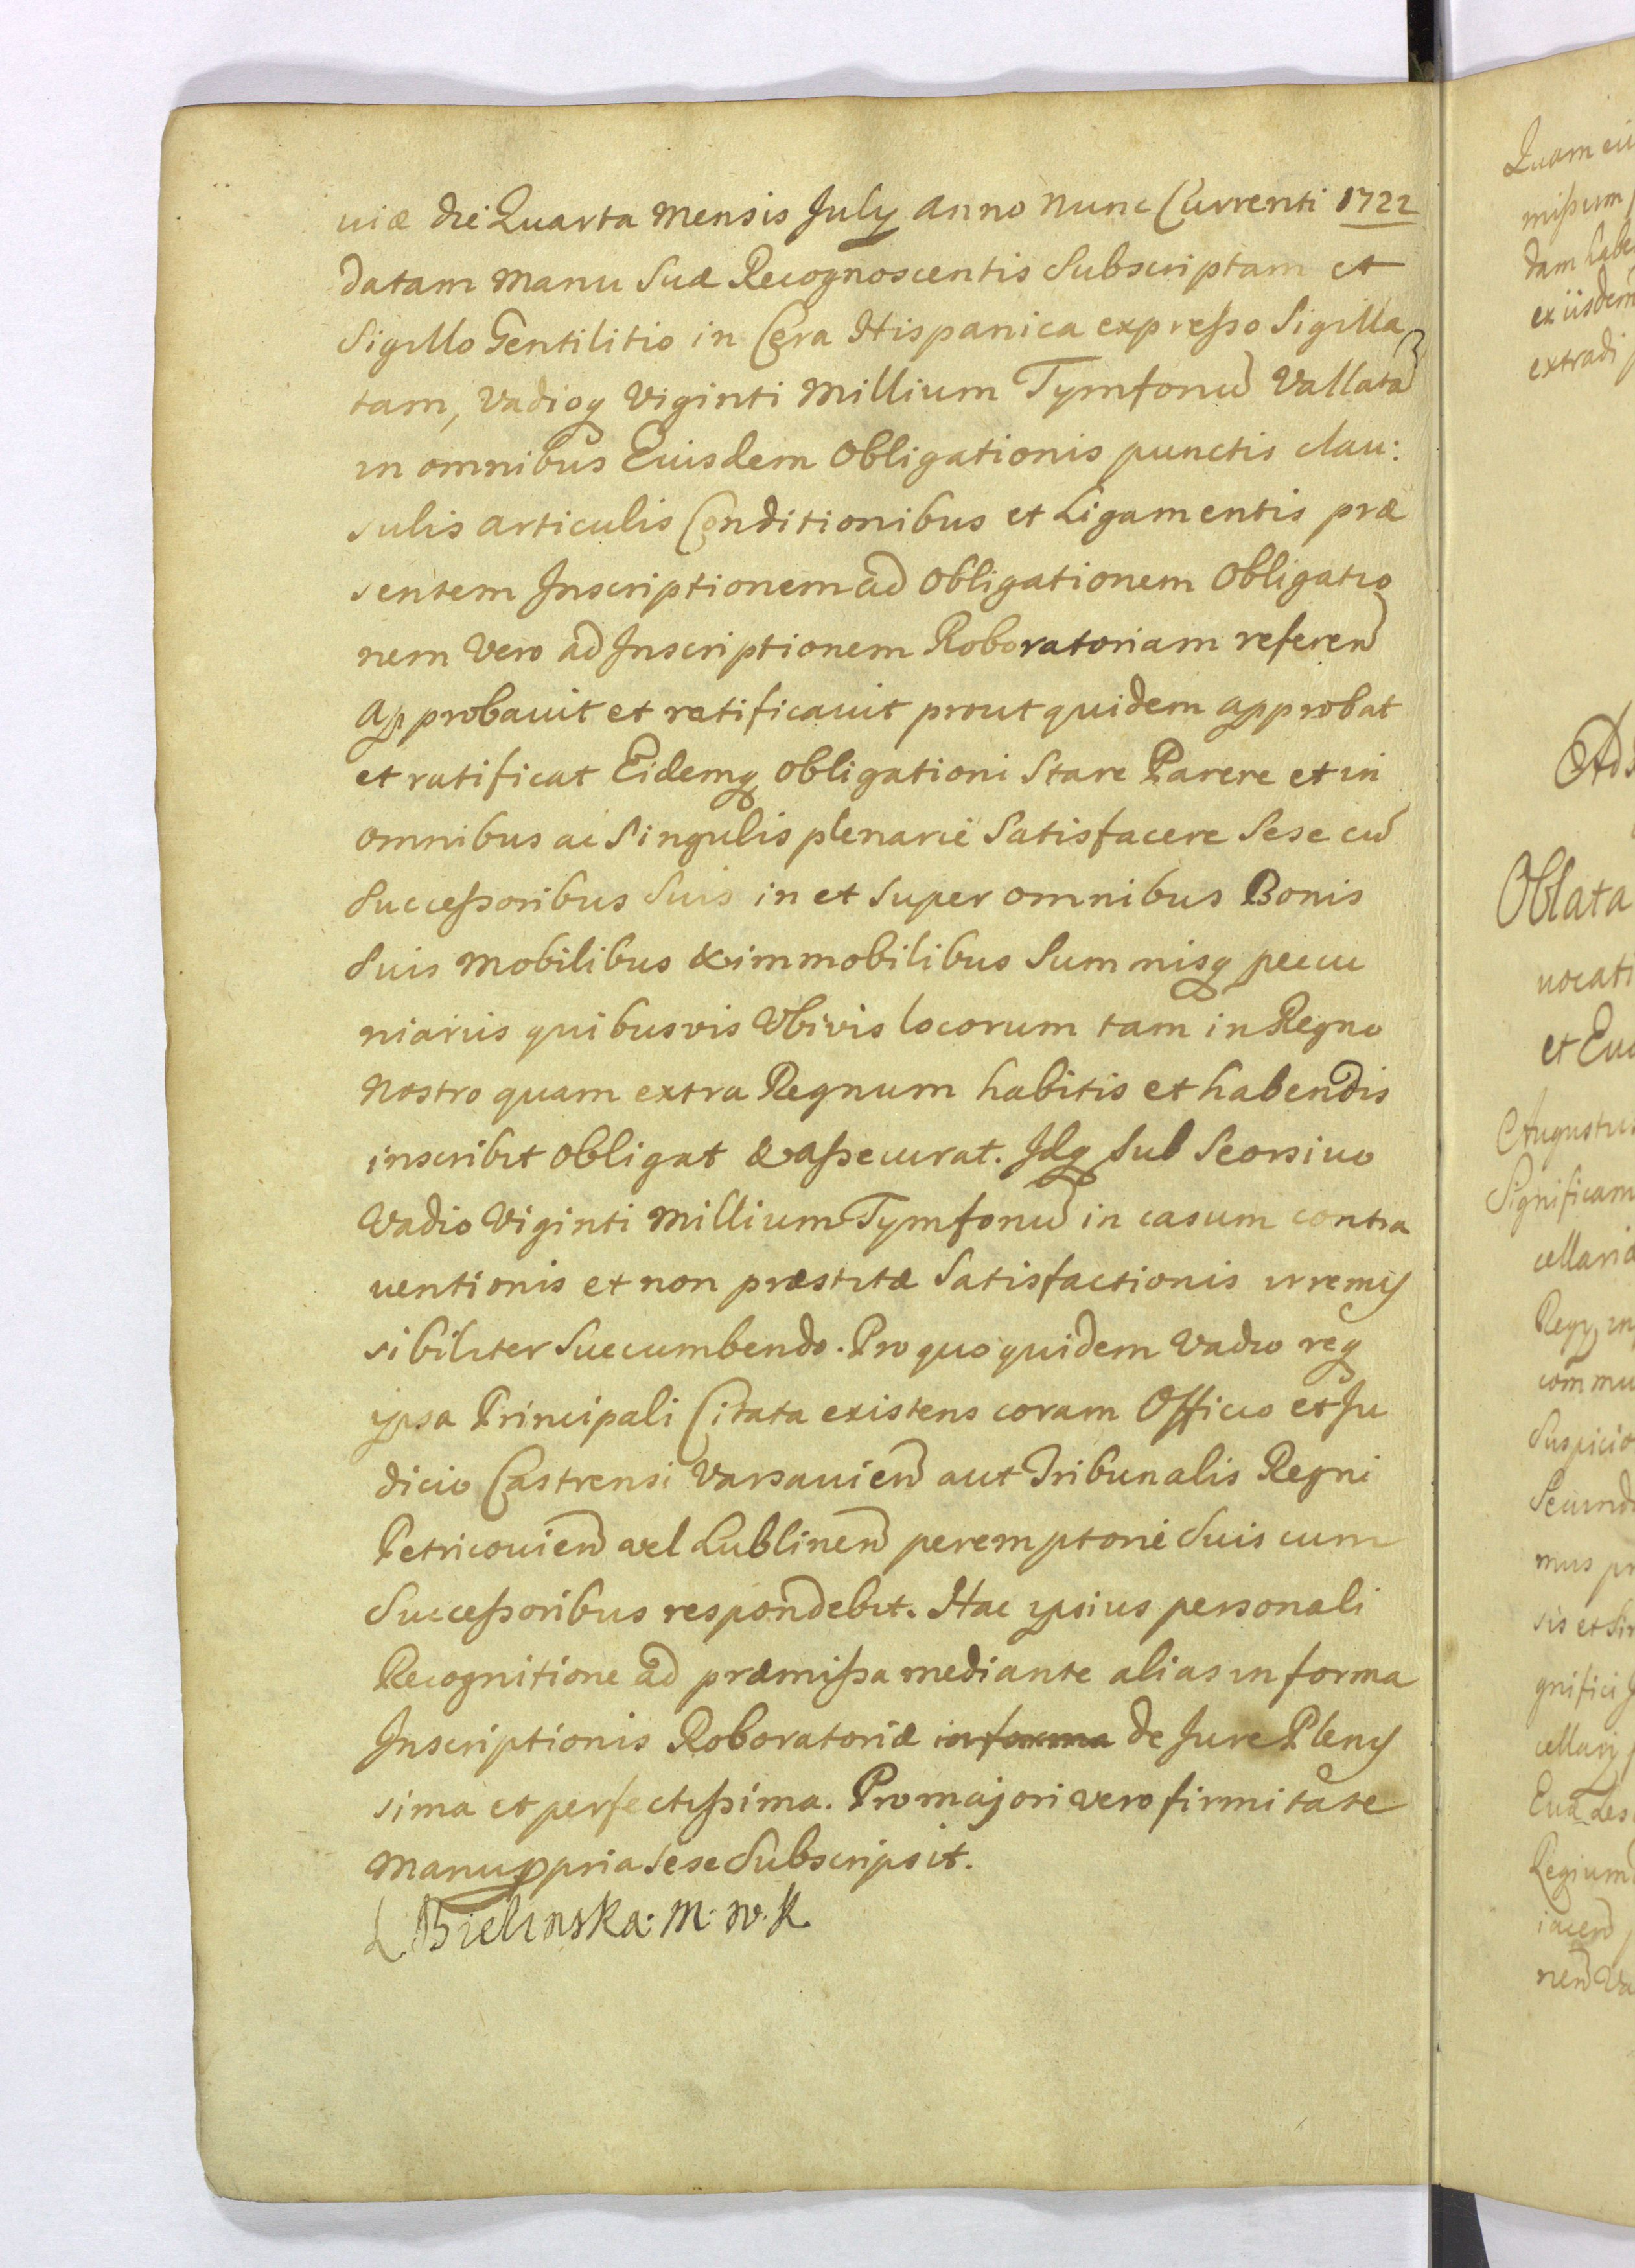 uiæ die Quarta Mensis July anno Nunc Currenti 1722
datam Manu Suæ Recognoscentis Subscriptam et
Sigillo Gentilitio in Cera Hispanica expresso Sigilla
tam, Vadioq Viginti Millium Tymfonũ Vallatã
in omnibus Euisdem Obligationis punctis clau:
sulis articulis Conditionibus et Ligamentis præ
sentem Inscriptionem ad Obligationem Obligatio
nem Vero ad Inscriptionem Roboratoriam referen̄
approbauit et ratificauit prout quidem approbat
et ratificat Eidemq Obligationi Stare Parere et in
omnibus ac Singulis plenarie Satisfacere Sese cũ
Successoribus Suis in et Super omnibus Bonis
Suis Mobilibus & immobilibus Summisq pecu
niariis quibusvis Ubivis locorum tam in Regno
Nostro quam extra Regnum habitis et habendis
inscribit Obligat & assecurat. Idq sub Seorsiuo
Vadio Viginti Millium Tymfonũ in casum contra
uentionis et non præstitæ Satisfactionis irremis
sibiliter Succumbendo. Pro quo quidem Vadio req
ipsa Principali Citata existens coram Officio et Ju
dicio Castrensi Varsauien̄ aut Tribunalis Regni
Petricouien̄ vel Lublinen̄ peremptorie Suis cum
Successoribus respondebit. Hac ipsius personali
Recognitione ad præmissa mediante alias in forma
Inscriptionis Roboratoriæ in forma de Jure Plenis
sima et perfectissima. Pro majori vero firmitate
Manu ppria Sese Subscripsit.
L Bielinska. M. W. K.
Quam
missum
dam habe
ex iisdem
extradi
Oblata
uocati
et Eua
Augustus
Significam
cellaria
Regy in
com̄mu
Suspicio
Secund
mus
sis et Si
gnifici
cellary
Regium